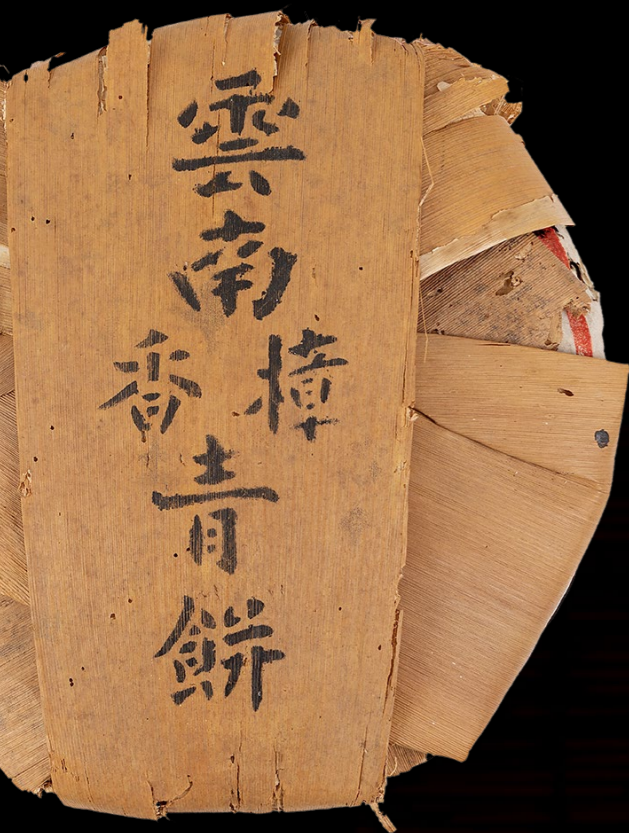 雲南
樟香
青餅